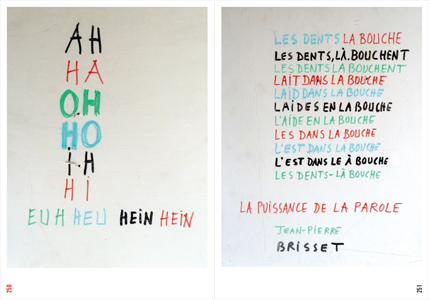 AH
HA
OH
HO
iH
Hi
EUH HEU HEiN HEiN
250
LES DENTS LA BOUCHE
LES DENTS, LÀ. BOUCHENT
LES DENTS LA BOUCHENT
LAIT DANS LA BOUCHE
LAID DANS LA BOUCHE
LAIDES EN LA BOUCHE
L'AIDE EN LA BOUCHE
LES DANS LA BOUCHE
L'EST DANS LA BOUCHE
L'EST DANS LE À BOUCHE
LES DENTS-LÀ BOUCHE
LA PUISSANCE DE LA PAROLE
JEAN-PIERRE
BRISSET
251